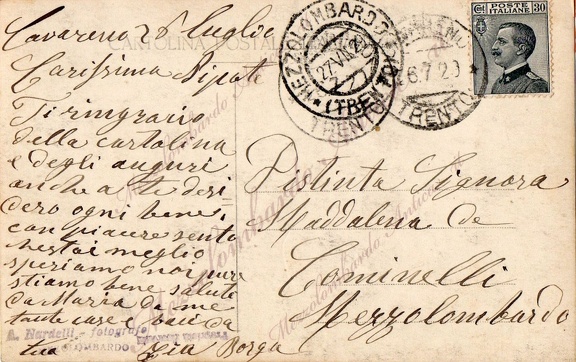 Cavareno 26 Luglio
CARTOLINA POSTALE
Carissima Nipote
Ti ringrazio
della cartolina
e degli auguri
anche a te desi-
dero ogni bene,
con piacere sento
che stai meglio
speriamo noi pure
stiamo bene saluta
da Maria da me
tante cose e baci da
tua Zia Borga
A. Nardelli - fotografo
MEZZOLOMBARDO
MEZZOLOMBARDO
27 VII 20
(TRENTO)
6.7.20
TRENTO
POSTE ITALIANE
Cent 30
Distinta Signora
Maddalena de
Cominelli
Mezzolombardo